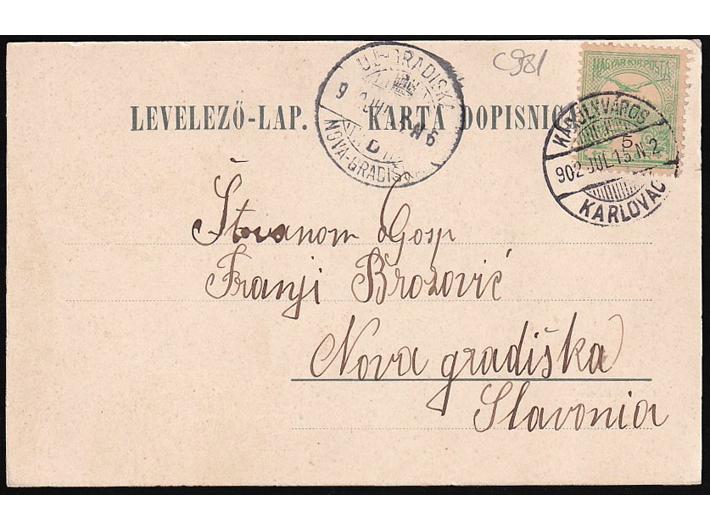 C981
MAGYAR KIR. POSTA
UJ-GRADISKA
9
NOVA-GRADIS
D
N6
KÁROLYVÁROS
902 JUL 15 N2
KARLOVAC
5
LEVELEZŐ-LAP. KARTA DOPISNIC
Štovanom Gosp
Franji Brozović
Nova gradiška
Slavonia